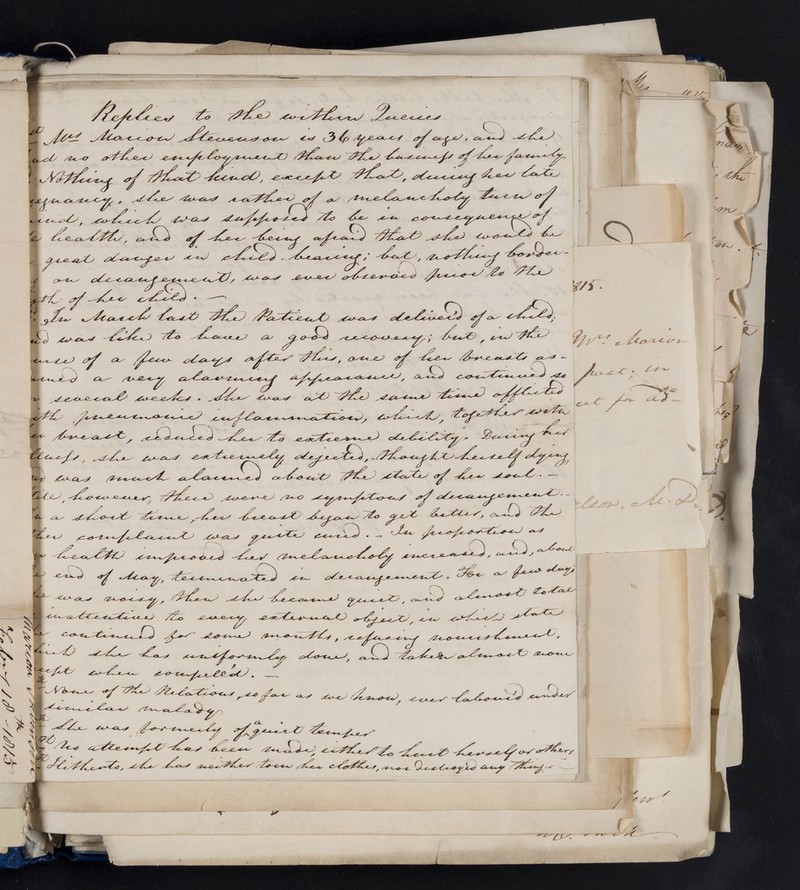 Replies to the within Queries
Mrs Marion Stevenson is 36 years of age, and she
ad no other employment than the business of her family.
Nothing of that kind, except that, during her late
egnancy, she was rather of a melancholy turn of
ind, which was supposed to be in consequence of
health, and of her being afraid that she would be
great danger in child-bearing; but, nothing border-
on derangement, was ever observed prior to the
th of her child. —
In March last the Patient was deliver'd of a child,
nd was like to have a good recovery; but, in the
urse of a few days after this, one of her breasts as-
umed a very alarming appearance, and continued so
several weeks. She was at the same time afflicted
ith pneumonic inflammation, which, together with
breast, reduced her to extreme debility. During her
llness, she was extremely dejected, thought herself dying,
nd was much alarmed about the state of her soul. —
Still, however, there were no symptoms of derangement. —
In a short time, her breast began to get better, and the
ther complaint was quite cured. — In proportion as
health improved her melancholy increased, and, about
end of May, terminated in derangement. For a few days
she was noisy, then she became quiet, and almost total
inattentive to every external object, in which state
continued for some months, refusing nourishment,
hich she has uniformly done, and taken almost none
cept when compell'd. —
None of the Relations, so far as we know, ever labour'd under
similar malady
She was formerly of a quiet temper
No attempt has been made, either to hurt herself or others
Hitherto, she has neither torn her clothes, nor destroyed any thing —
1815.
Mrs Marion
past; in
lson. M.D.